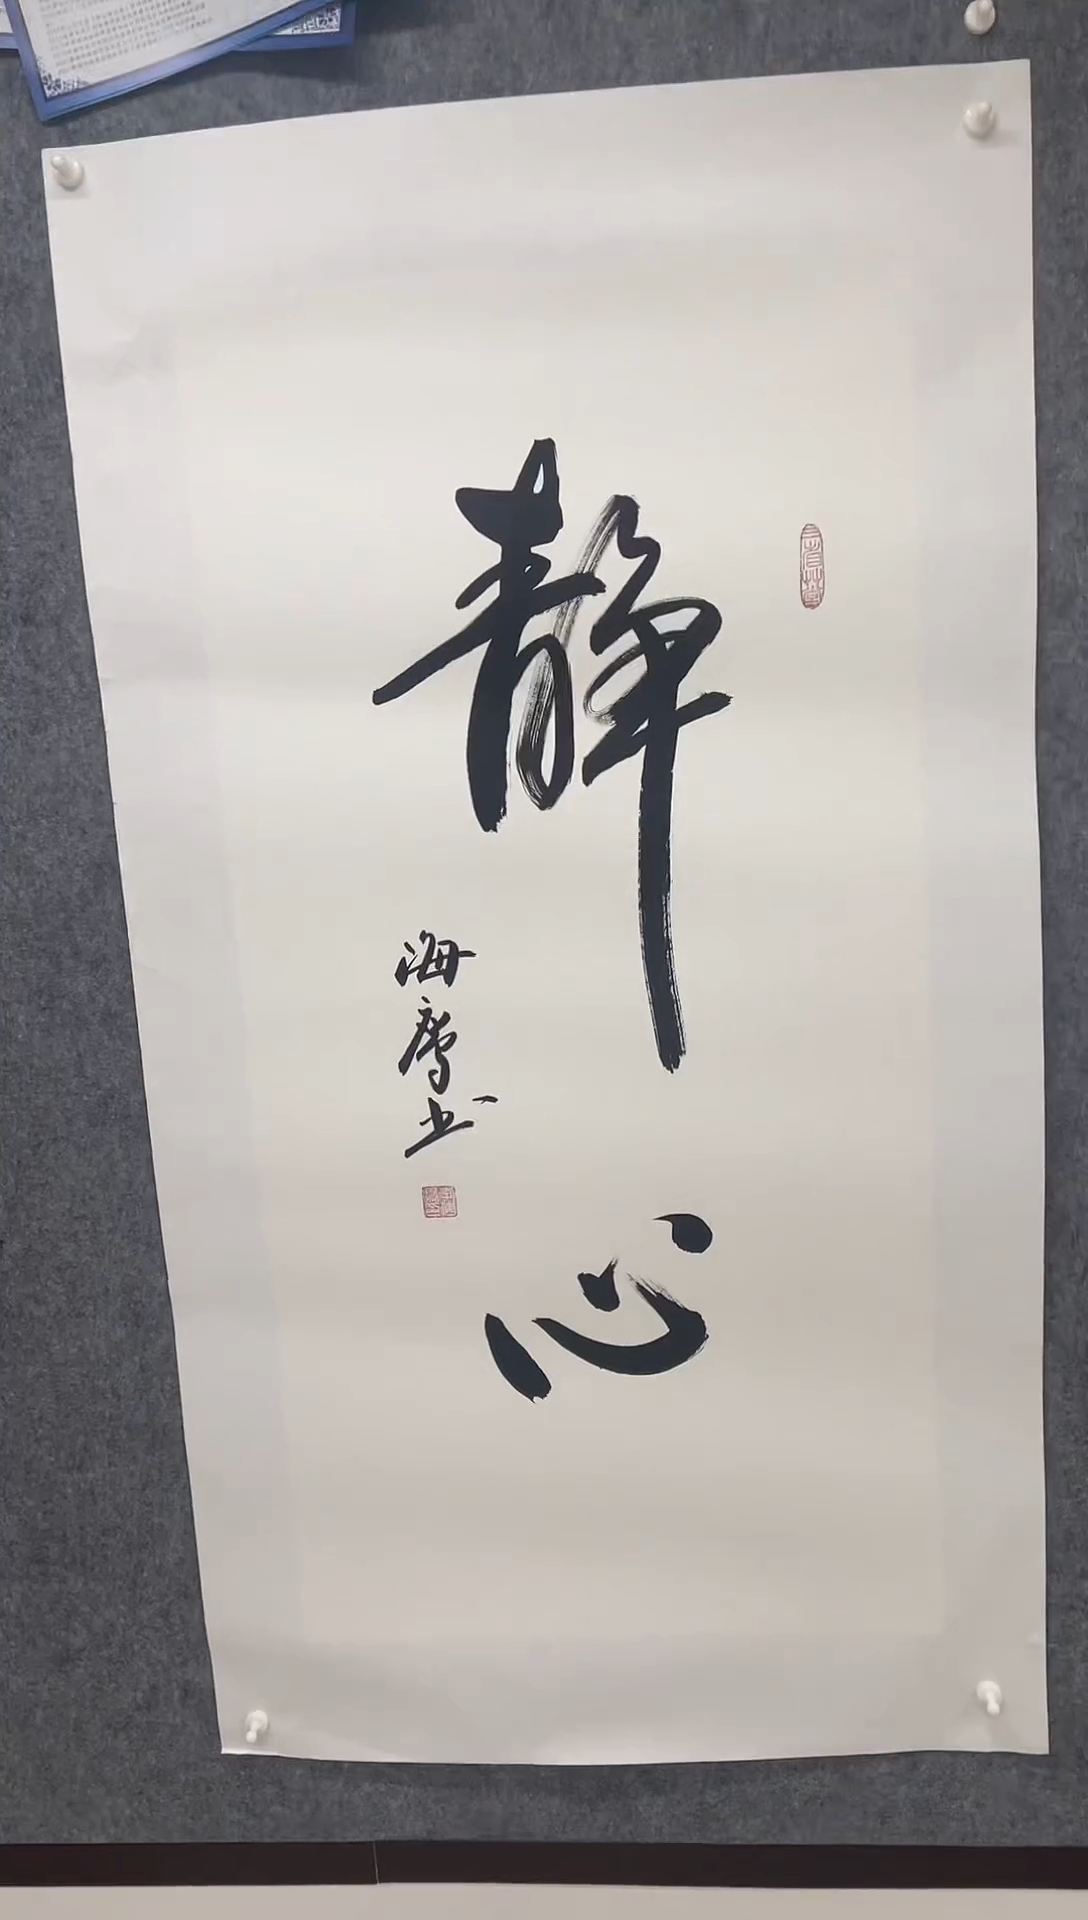 静心
海鹰书